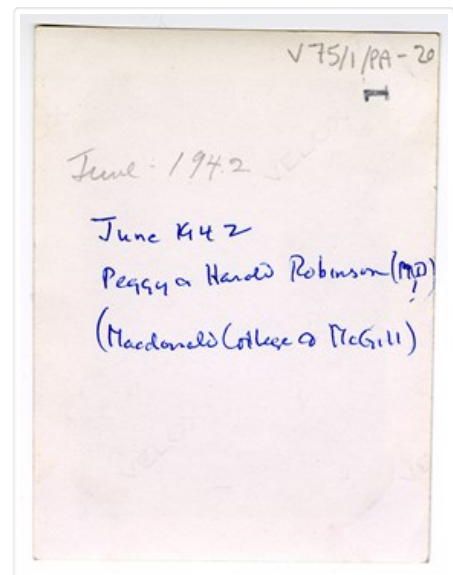 V75/1/PA-20
1
June - 1942
June 1942
Peggy & Harold Robinson (MD)
?
(Macdonald College & McGill)
VELOX
VELOX